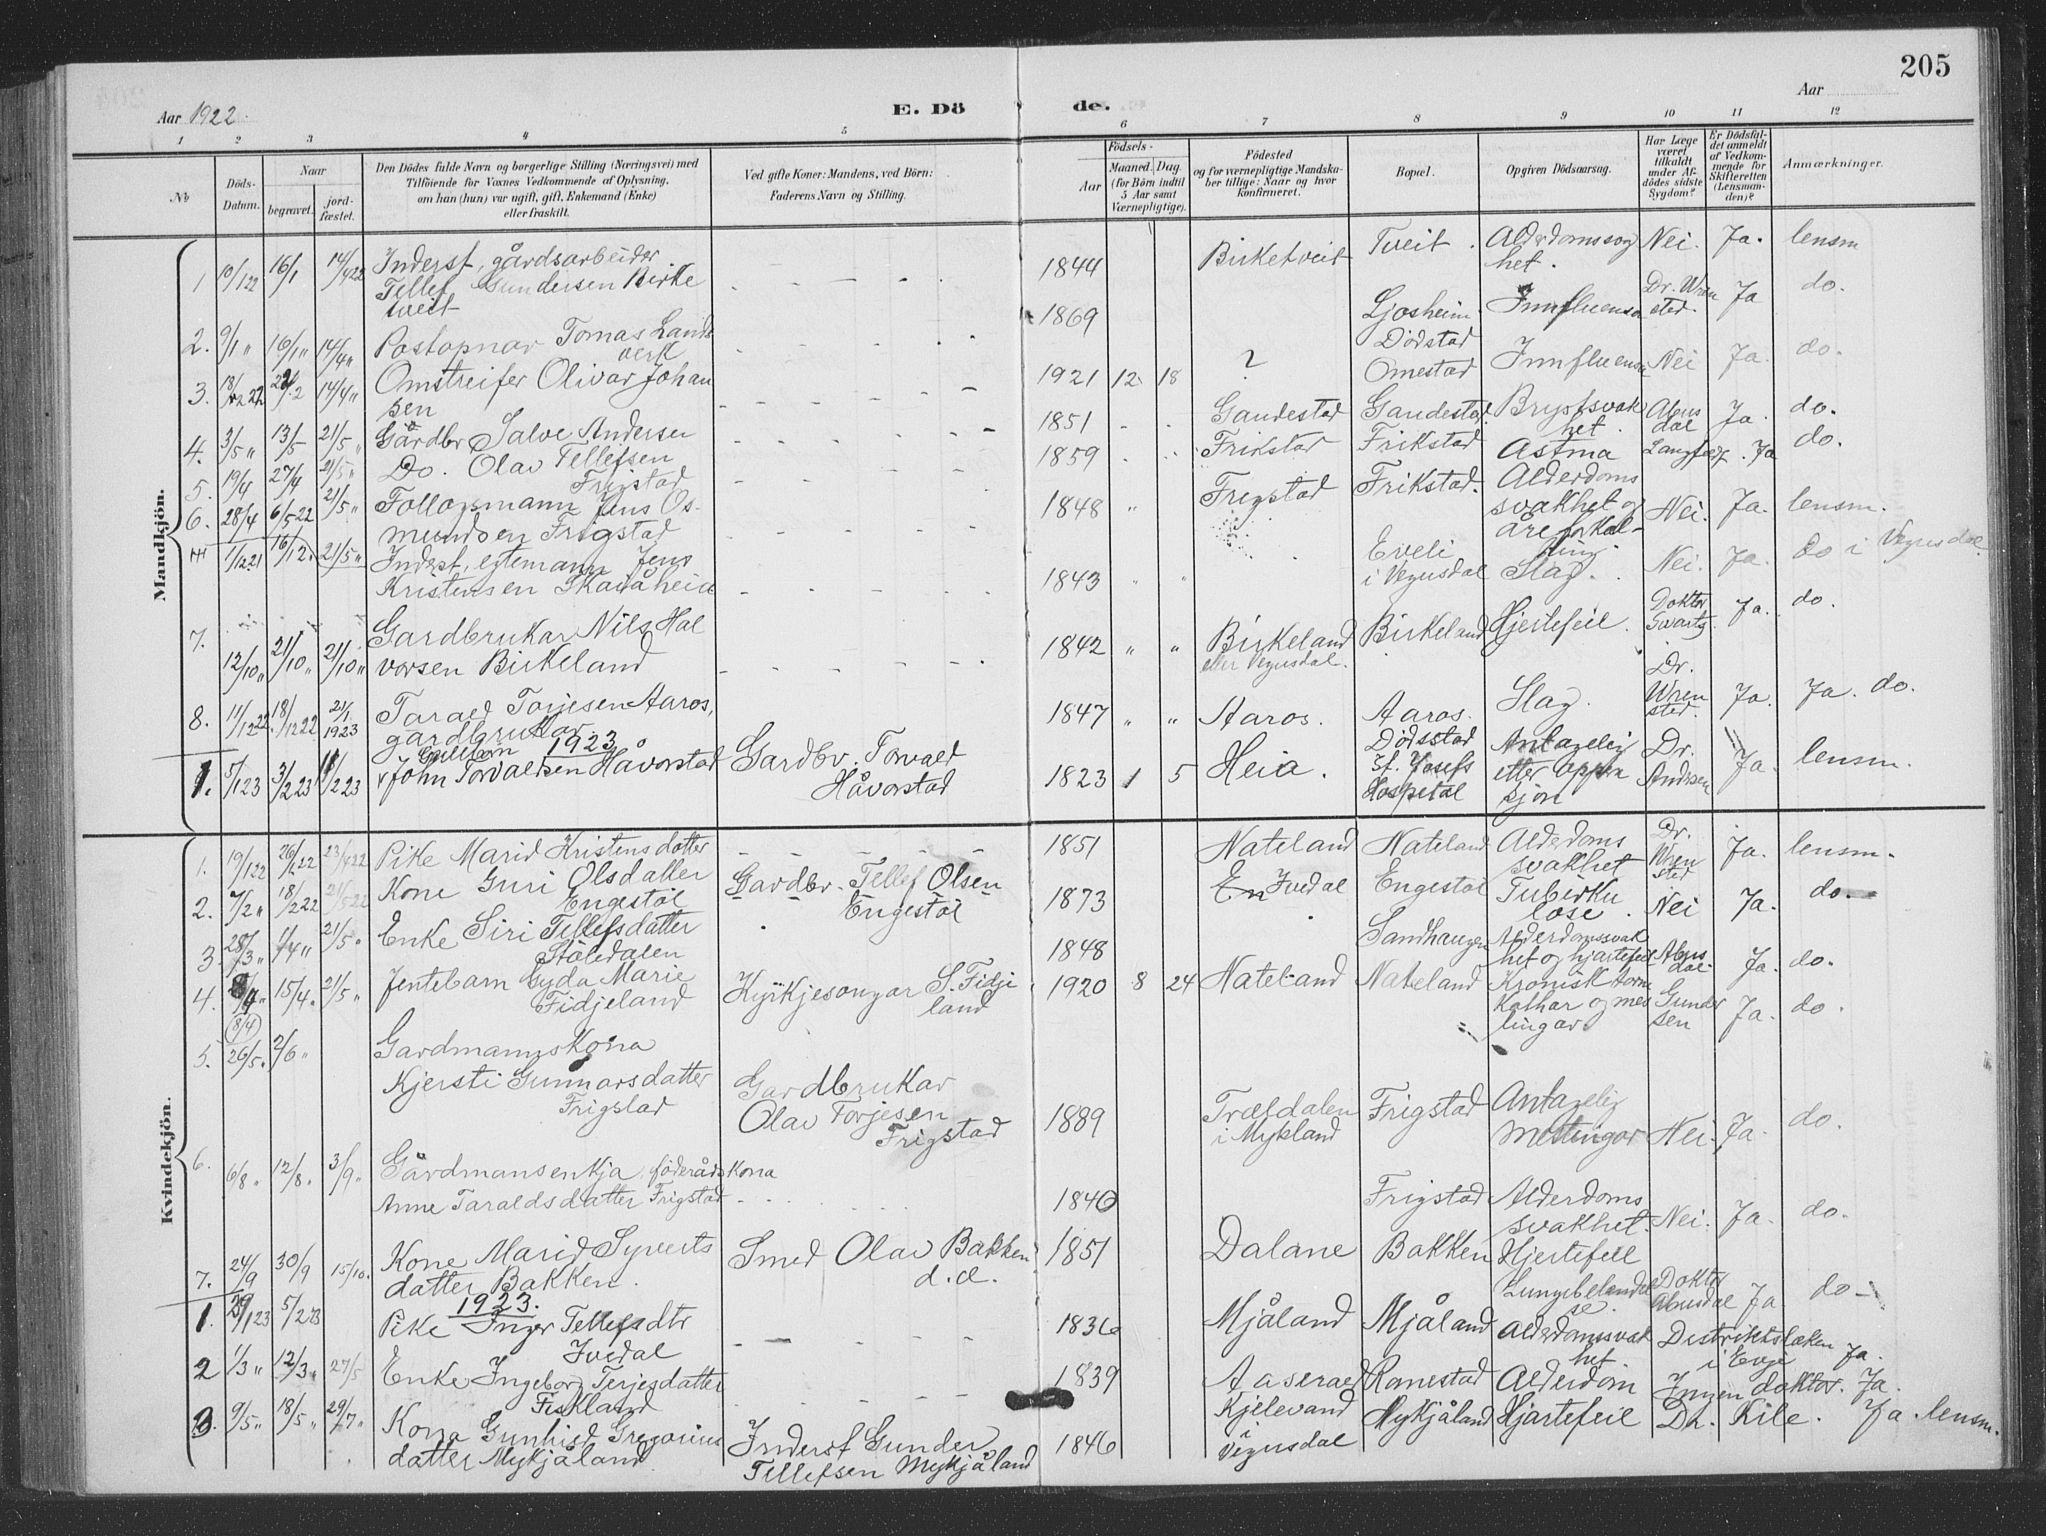 205
Aar 1922.
E. Dö de.
Aar
1 2 3 4 5 6 7 8 9 10 11 12
No
Döds-Datum.
Naar
begravet.
jord-fæstet.
Den Dödes fulde Navn og borgerlige Stilling (Næringsvei) med
Tilföiende for Voxnes Vedkommende af Oplysning,
om han (hun) var ugift, gift, Enkemand (Enke)
eller fraskilt.
Ved gifte Koner: Mandens, ved Börn:
Faderens Navn og Stilling.
Födsels-
Aar
Maaned. Dag.
(for Börn indtil
5 Aar samt
Værnepligtige).
Födested
og for værnepligtige Mandska-
ber tillige: Naar og hvor
konfirmeret.
Bopæl.
Opgiven Dödsaarsag.
Har Læge
været
tilkaldt
under Af-
dödes sidste
Sygdom?
Er Dödsfal-
det anmeldt
af Vedkom-
mende for
Skifteretten
(Lensman-
den)?
Anmærkninger.
Mandkjön.
1 10/1 22 16/1 14/4 22 Inderst, gårdsarbeider
Tellef Gundersen Birke
tveit 1844 Birketveit Tveit. Alderdomssvag
het. Nei. Ja. lensm
2. 9/1 " 16/1 " 14/4 " Postopnar Tomas Lands
verk 1869 Ljosheim Dødstad Innfluensa Dr. Wren
sted. Ja do.
3. 18/12 22 14/4 " Omstreifer Olivar Johan
sen 1921 12 18 ? Omestad Innfluensa Nei Ja. do.
4. 3/5 " 13/5 21/5 " Gårdbr Salve Andersen 1851 Gaudestad Gaudestad Brystsvak
het. Abus
dal Ja. do.
5. 19/4 27/4 21/5 " Do. Olav Tellefsen
Frigstad 1859 Frikstad Frikstad Astma Langfeldt. Ja do.
6. 28/4 6/5 22 21/5 " Follogsmann Jens Os-
mundsen Frigstad 1848 " Frigstad Frikstad. Alderdoms
svakhet og
åreforkal-
ning. Nei. Ja. lensm.
1/12 21 16/12. 21/5 " Inderst, egtemann Jens
Kristensen Skaråheia 1843 " " Eveli
i Vegusdal Slag. Nei. Ja. do i Vegusdal
7. 12/10 " 21/10 " 21/10 " Gardbrukar Nils Hal
vorsen Birkeland 1842 " " Birkeland
eller Vegusdal. Birkeland Hjertefeil. Doktor
Svartz. Ja. do.
8. 11/12 22. 18/12 22 21/1 1923 Tarald Torjesen Aaros,
gardbrukar 1847 " " Aaros. Aaros. Slag. Dr.
Wren
sted. Ja. Ja. do.
1923
1. 5/1 23 3/2 23 /2 23 John Torvaldsen Håvorstad Gardbr. Torvald
Håvorstad 1823 1 5 Heia. Dødsstad
St. Josefs
Hospital Antagelig
etter opera
sjon Dr.
Andersen Ja. lensm.
Kvindekjön.
1. 19/1 22 26/1 22 23/4 22 Pike Marid Kristensdatter 1851 Nateland Nateland Alderdoms
svakhet Dr.
Wren
sted Ja. lensm.
2. 7/2 " 18/2 22 21/5 22 Kone Guri Olsdatter
Engestöl Gardbr. Tellef Olsen
Engestöl 1873 Ivedal Engestöl Tuberku
lose. Nei Ja. do.
3. 28/3 " 1/4 " 21/5 " Enke Siri Tellefsdatter
Ståledalen 1848 Sandhaugen Alderdomssvak
het og hjartefeil Abus
dal Ja. do.
4. (8/4) 15/4. 21/5 " Jentebarn Gyda Marie
Fidjeland Kyrkjesongar S. Fidje
land 1920 8 24 Nateland Nateland Kronisk tarm
kathar og mes
lingar Gunder
sen Ja. do.
5. 26/5. 2/6 " Gardmannskona
Kjersti Gunnarsdatter
Frigstad Gardbrukar
Olav Torjesen
Frigstad 1889 Trældalen
i Mykland Frigstad Antagelig
meslingar Nei. Ja. do.
6. 6/8 " 12/8 " 3/9 " Gårdmansenkja, föderådskona
Anne Taraldsdatter Frigstad 1840 Frigstad Alderdoms
svakhet. Nei. Ja. do.
7. 24/9 30/9 15/10. Kone Marid Syverts
datter Bakken. Smed Olav Bakken
d.e. 1851 Dalane Bakken Hjertefeil
Lungebetændel
se. Doktor
Abusdal Ja do-
1923.
1. 29/1 23 5/2 23 Pike Inger Tellefsdtr
Ivedal 1836 Mjåland Mjåland Alderdomssvak
het. Distriktslæken
i Evje Ja.
2 1/3 " 12/3 " 27/5 Enke Ingeborg Terjesdatter
Fiskland 1839 Aaseral Romestad Alderdom Ingen doktor. Ja.
3. 9/5 " 18/5 " 29/7 " Kona Gunhild Gregorius
datter Mykjåland Inderst Gunder
Tellefsen Mykjåland 1846 Kjelevand
i
Vegusdal Mykjåland Hjartefeil Dr. Kile. Ja. lensm.